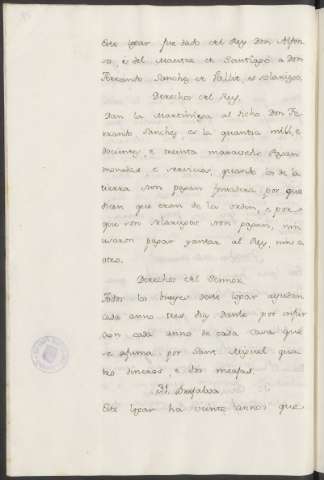 Este logar fue dado del Rey Don Alfon-
so, e del Maestre de Santiago a Don
Ferrando Sanchez de Vallit, es solariego.
Derechos del Rey.
Dan la Martiniega al dicho Don Fe-
rrando Sanchez es la quantia mill, e
docientos, e treinta maravedis. Pagan
monedas, e servicios, quando los de la
tierra non pagan fonsadera, por que
dicen que eran de la orden, e por-
que son solariegos non pagan, nin
usaron pagar yantar al Rey, nin a
otro.
Derechos del Señor.
Todos los deste logar ayudan
cada anno tres dias, danle por infur
cion cada anno de cada casa que
se afuma por Sant Miguel qua
tro dineros, e dos meajas.
Este logar ha veinte annos que